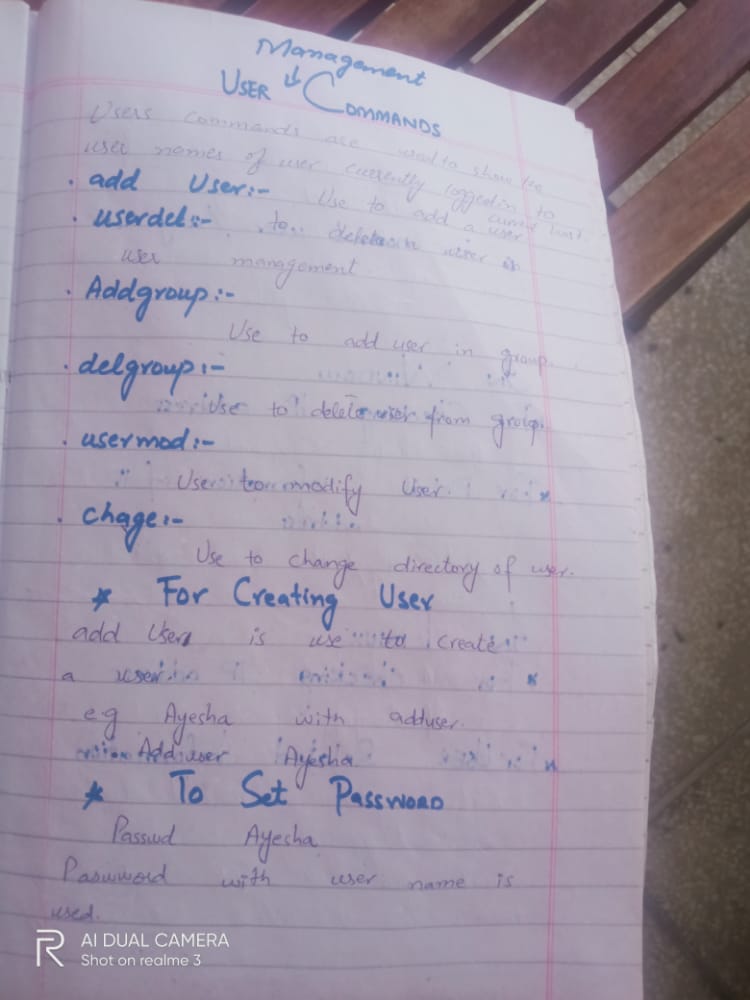 Management
↓
USER COMMANDS
Users commands are used to show the
user names of user currently logged in to
current host
• add User:- Use to add a user
• userdel:- to delete user in
user mangement
• Addgroup:-
Use to add user in group.
• delgroup:-
Use to delete user from group.
• usermod:-
Use to modify User.
• chage:-
Use to change directory of user.
* For Creating User
add User is use to create
a user
eg Ayesha with adduser.
Adduser Ayesha
* To Set PASSWORD
Passwd Ayesha
Password with user name is
used.
R
AI DUAL CAMERA
Shot on realme 3